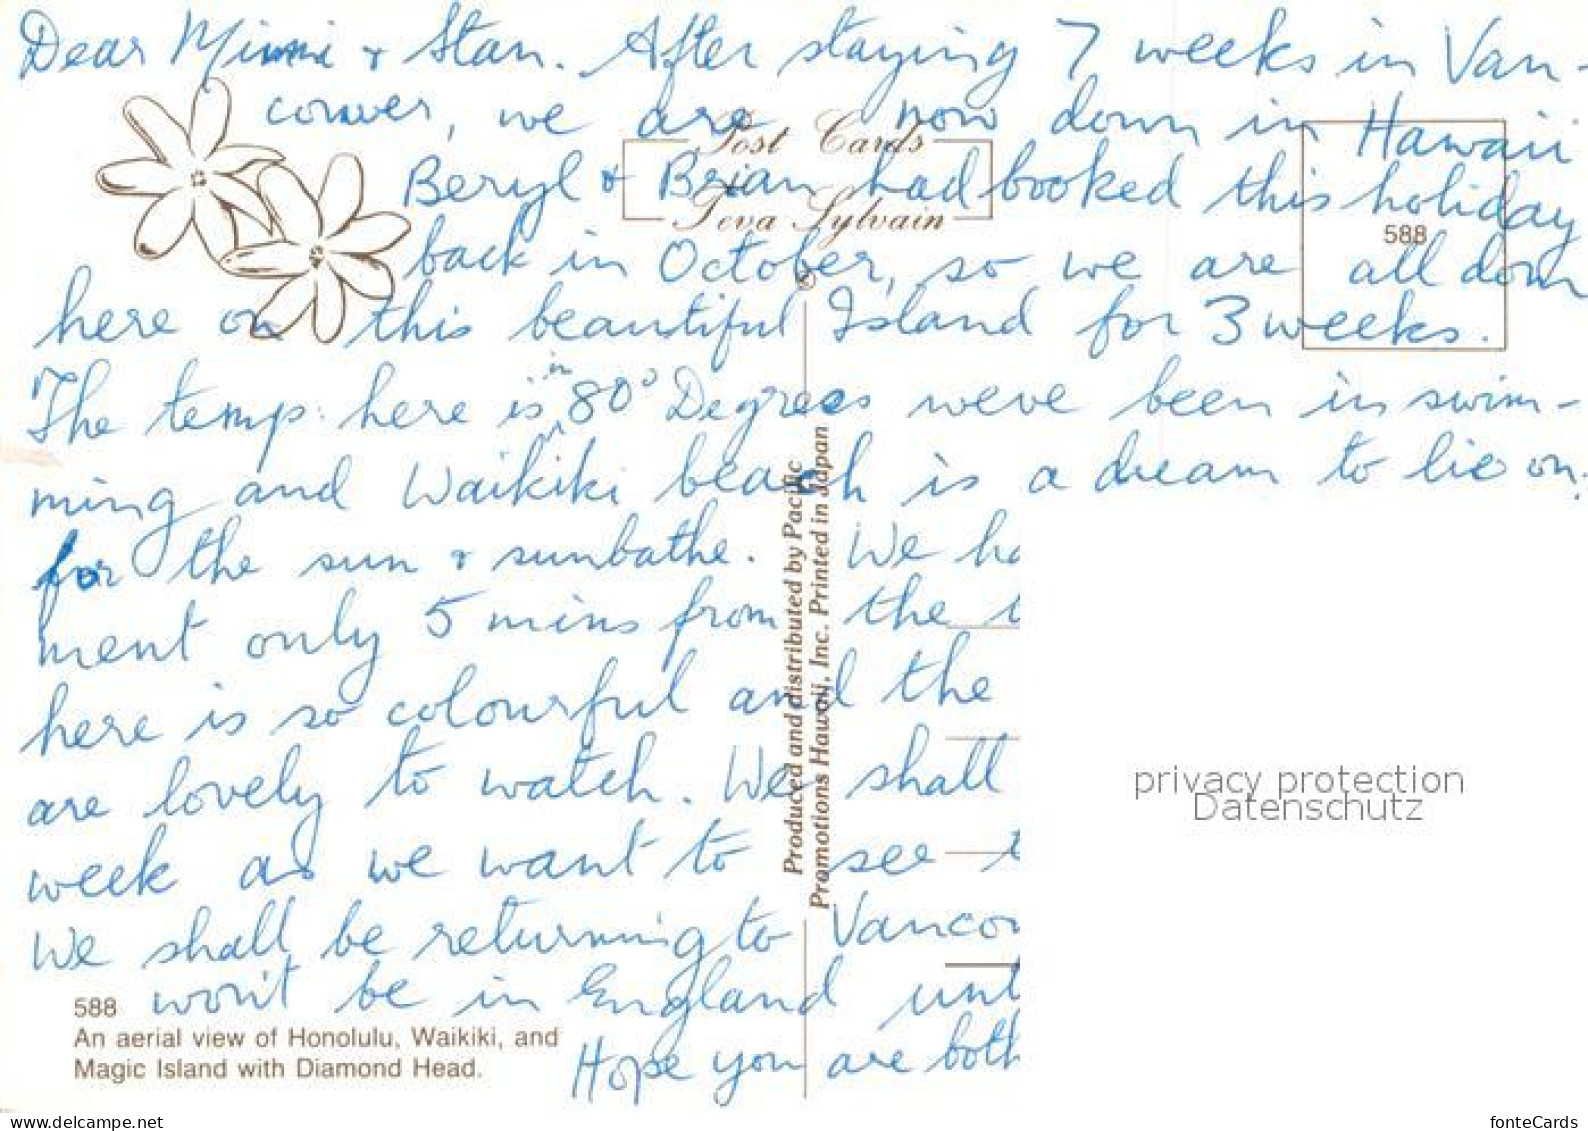 Dear Mimi & Stan. After staying 7 weeks in Van-
couver, we are now down in Hawaii
Post Cards
Beryl & Brian had booked this holiday
Teva Sylvain
588
back in October, so we are all down
©
here on this beautiful Island for 3 weeks.
The temp: here is in 80° Degrees weve been in swim-
ming and Waikiki beach is a dream to lie on.
for the sun & sunbathe. We ha
ment only 5 mins from the
here is so colourful and the
are lovely to watch. We shall
week as we want to see
We shall be returning to Vancou
won't be in England unt
Hope you are both
588
An aerial view of Honolulu, Waikiki, and
Magic Island with Diamond Head.
Produced and distributed by Pacific
Promotions Hawaii, Inc. Printed in Japan
privacy protection
Datenschutz
www.delcampe.net
fonteCards